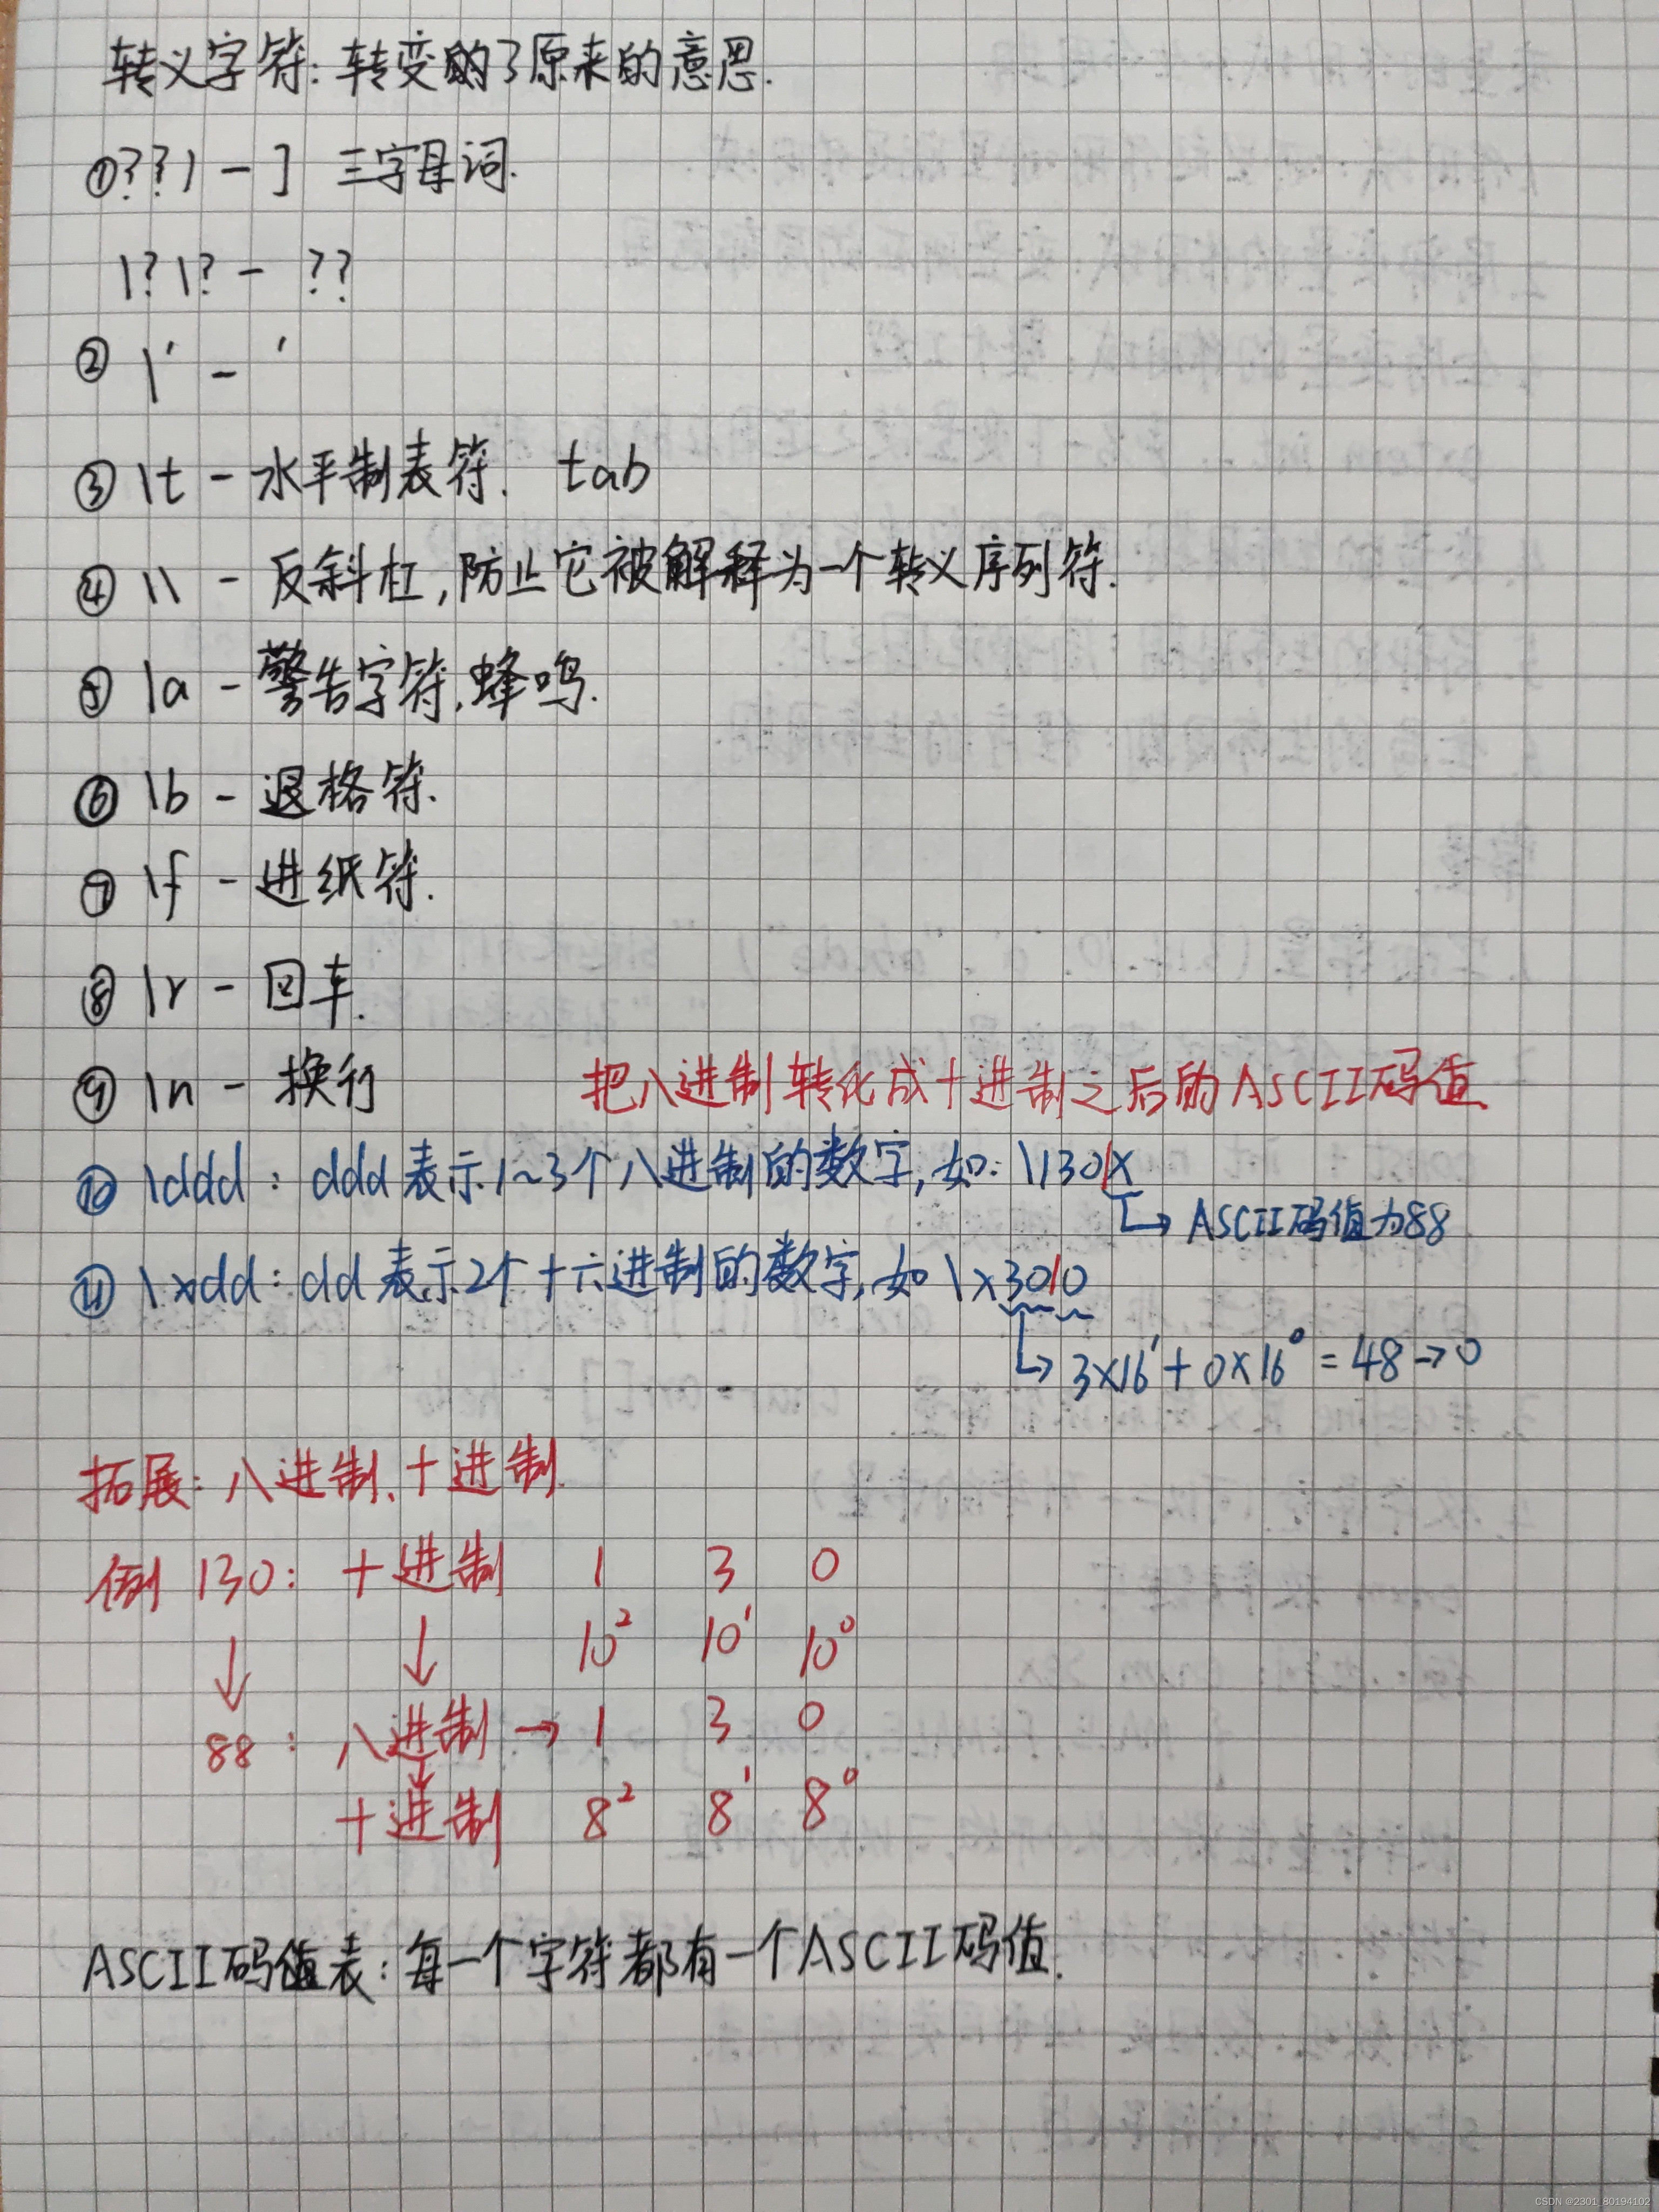 转义字符：转变的了原来的意思.
①??) - ] 三字母词.
\?\? - ??
② \' - '
③ \t - 水平制表符. tab
④ \\ - 反斜杠,防止它被解释为一个转义序列符.
⑤ \a - 警告字符,蜂鸣.
⑥ \b - 退格符.
⑦ \f - 进纸符.
⑧ \r - 回车.
⑨ \n - 换行
把八进制转化成十进制之后的ASCII码值
⑩ \ddd : ddd表示1~3个八进制的数字,如: \130|X
↳ ASCII码值为88
⑪ \xdd : dd表示2个十六进制的数字,如 \x30|0
↳ 3×16¹+0×16⁰=48→0
拓展: 八进制、十进制.
例 130: 十进制 1 3 0
↓ ↓ 10² 10¹ 10⁰
88 : 八进制 → 1 3 0
↓
十进制 8² 8¹ 8⁰
ASCII码值表: 每一个字符都有一个ASCII码值.
CSDN @2301_80194102